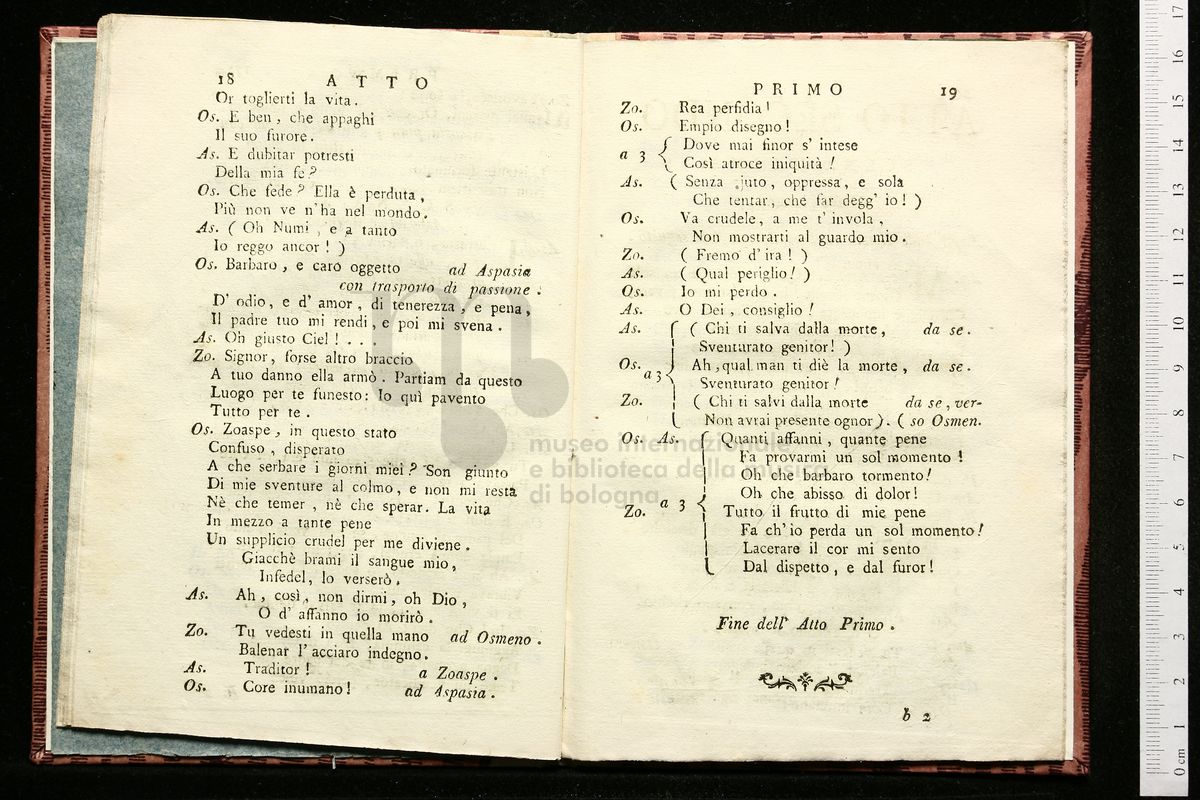 18 ATTO
Or toglierti la vita.
Os. E ben, che appaghi
Il suo furore.
As. E dubitar potresti
Della mia fe?
Os. Che fede? Ella è perduta,
Più non ve n'ha nel mondo.
As. ( Oh Numi, e a tanto
Io reggo ancor! )
Os. Barbaro, e caro oggetto ad Aspasia
con trasporto di passione.
D' odio, e d' amor, di tenerezza, e pena,
Il padre tuo mi rendi, e poi mi svena.
As. Oh giusto Ciel! . . .
Zo. Signor, forse altro braccio
A tuo danno ella armò. Partiam da questo
Luogo per te funesto: Io quì pavento
Tutto per te.
Os. Zoaspe, in questo stato
Confuso, disperato
A che serbare i giorni miei? Son giunto
Di mie sventure al colmo, e non mi resta
Nè che temer, nè che sperar. La vita
In mezzo a tante pene
Un supplicio crudel per me diviene.
Giacchè brami il sangue mio,
Infedel, lo verserò.
As. Ah, così, non dirmi, oh Dio,
O d' affanno io morirò.
Zo. Tu vedesti in quella mano ad Osmeno.
Balenar l' acciaro indegno.
As. Traditor! a Zoaspe.
Os. Core inumano! ad Aspasia.
PRIMO 19
Zo. Rea perfidia!
Os. Empio disegno!
a 3 { Dove mai finor s' intese
Così atroce iniquità!
As. ( Senza ajuto, oppressa, e sola
Che tentar, che far degg' io! )
Os. Va crudele, a me t' invola,
Non mostrarti al guardo mio.
Zo. ( Fremo d' ira! )
As. ( Qual periglio! )
Os. Io mi perdo.
As. O Dei, consiglio!
As. ( Chi ti salva dalla morte, da se.
Sventurato genitor! )
Os. a 3 { Ah, qual man ti diè la morte, da se.
Sventurato genitor!
Zo. ( Chi ti salvi dalla morte da se, ver-
Non avrai presente ognor). ( so Osmen.
Os. As. Quanti affanni, quante pene
Fa provarmi un sol momento!
Oh che barbaro tormento!
Oh che abisso di dolor!
Zo. a 3 { Tutto il frutto di mie pene
Fa ch' io perda un sol momento!
Lacerare il cor mi sento
Dal dispetto, e dal furor!
Fine dell' Atto Primo.
b 2
museo internazionale
e biblioteca della musica
di bologna
0 cm 1 2 3 4 5 6 7 8 9 10 11 12 13 14 15 16 17